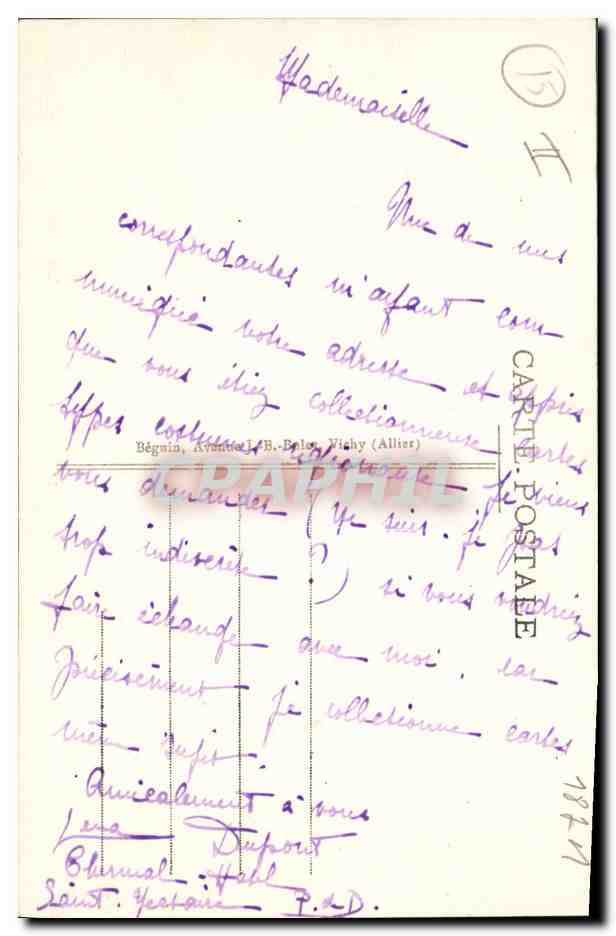 15
II
Mademoiselle
Une de mes
correspondantes m'ayant com
muniqué votre adresse et appris
que vous étiez collectionneuse cartes
types costumes régionaux je viens
vous demander (Ne suis-je pas
trop indiscrète ) si vous voudriez
faire échange avec moi, car
précisément je collectionne cartes
même sujet.
Amicalement à vous
Lena Dupont
Thermal Hotel
Saint-Nectaire P.-d-D.
Béguin, Avenue J.-B.-Bulot, Vichy (Allier)
CARTE POSTALE
CPAPHIL